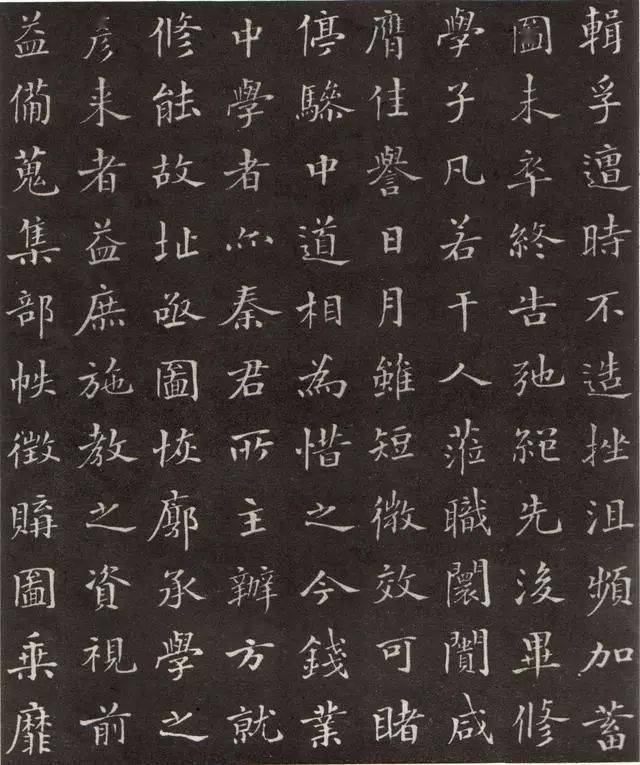 輯孚遭時不造挫沮頻加蓄
圖未卒終告弛絕先後畢修
學子凡若干人蒞職闤闠咸
膺佳譽日月雖短徵效可睹
停驂中道相為惜之今錢業
中學者亦秦君所主辦方就
修能故址亟圖恢廓承學之
彥来者益庶施教之資視前
益備蒐集部帙徵購圖乘靡